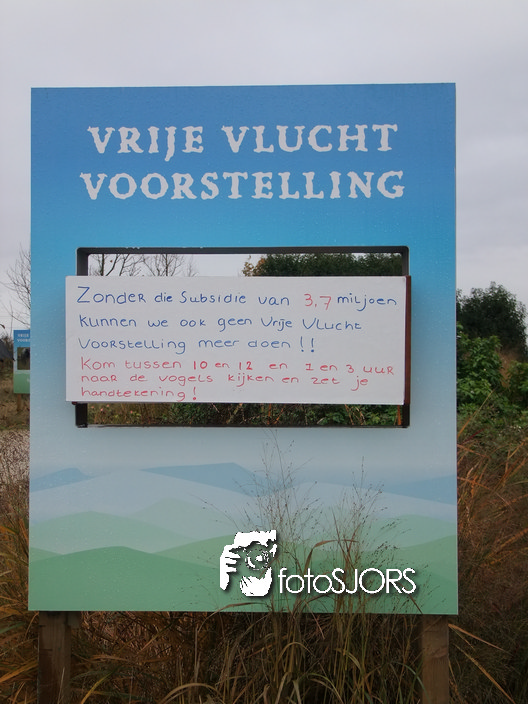 VRIJE VLUCHT
VOORSTELLING
Zonder die Subsidie van 3,7 miljoen
kunnen we ook geen Vrije Vlucht
Voorstelling meer doen !!
Kom tussen 10 en 12 en 1 en 3 uur
naar de vogels kijken en zet je
handtekening!
fotoSJORS